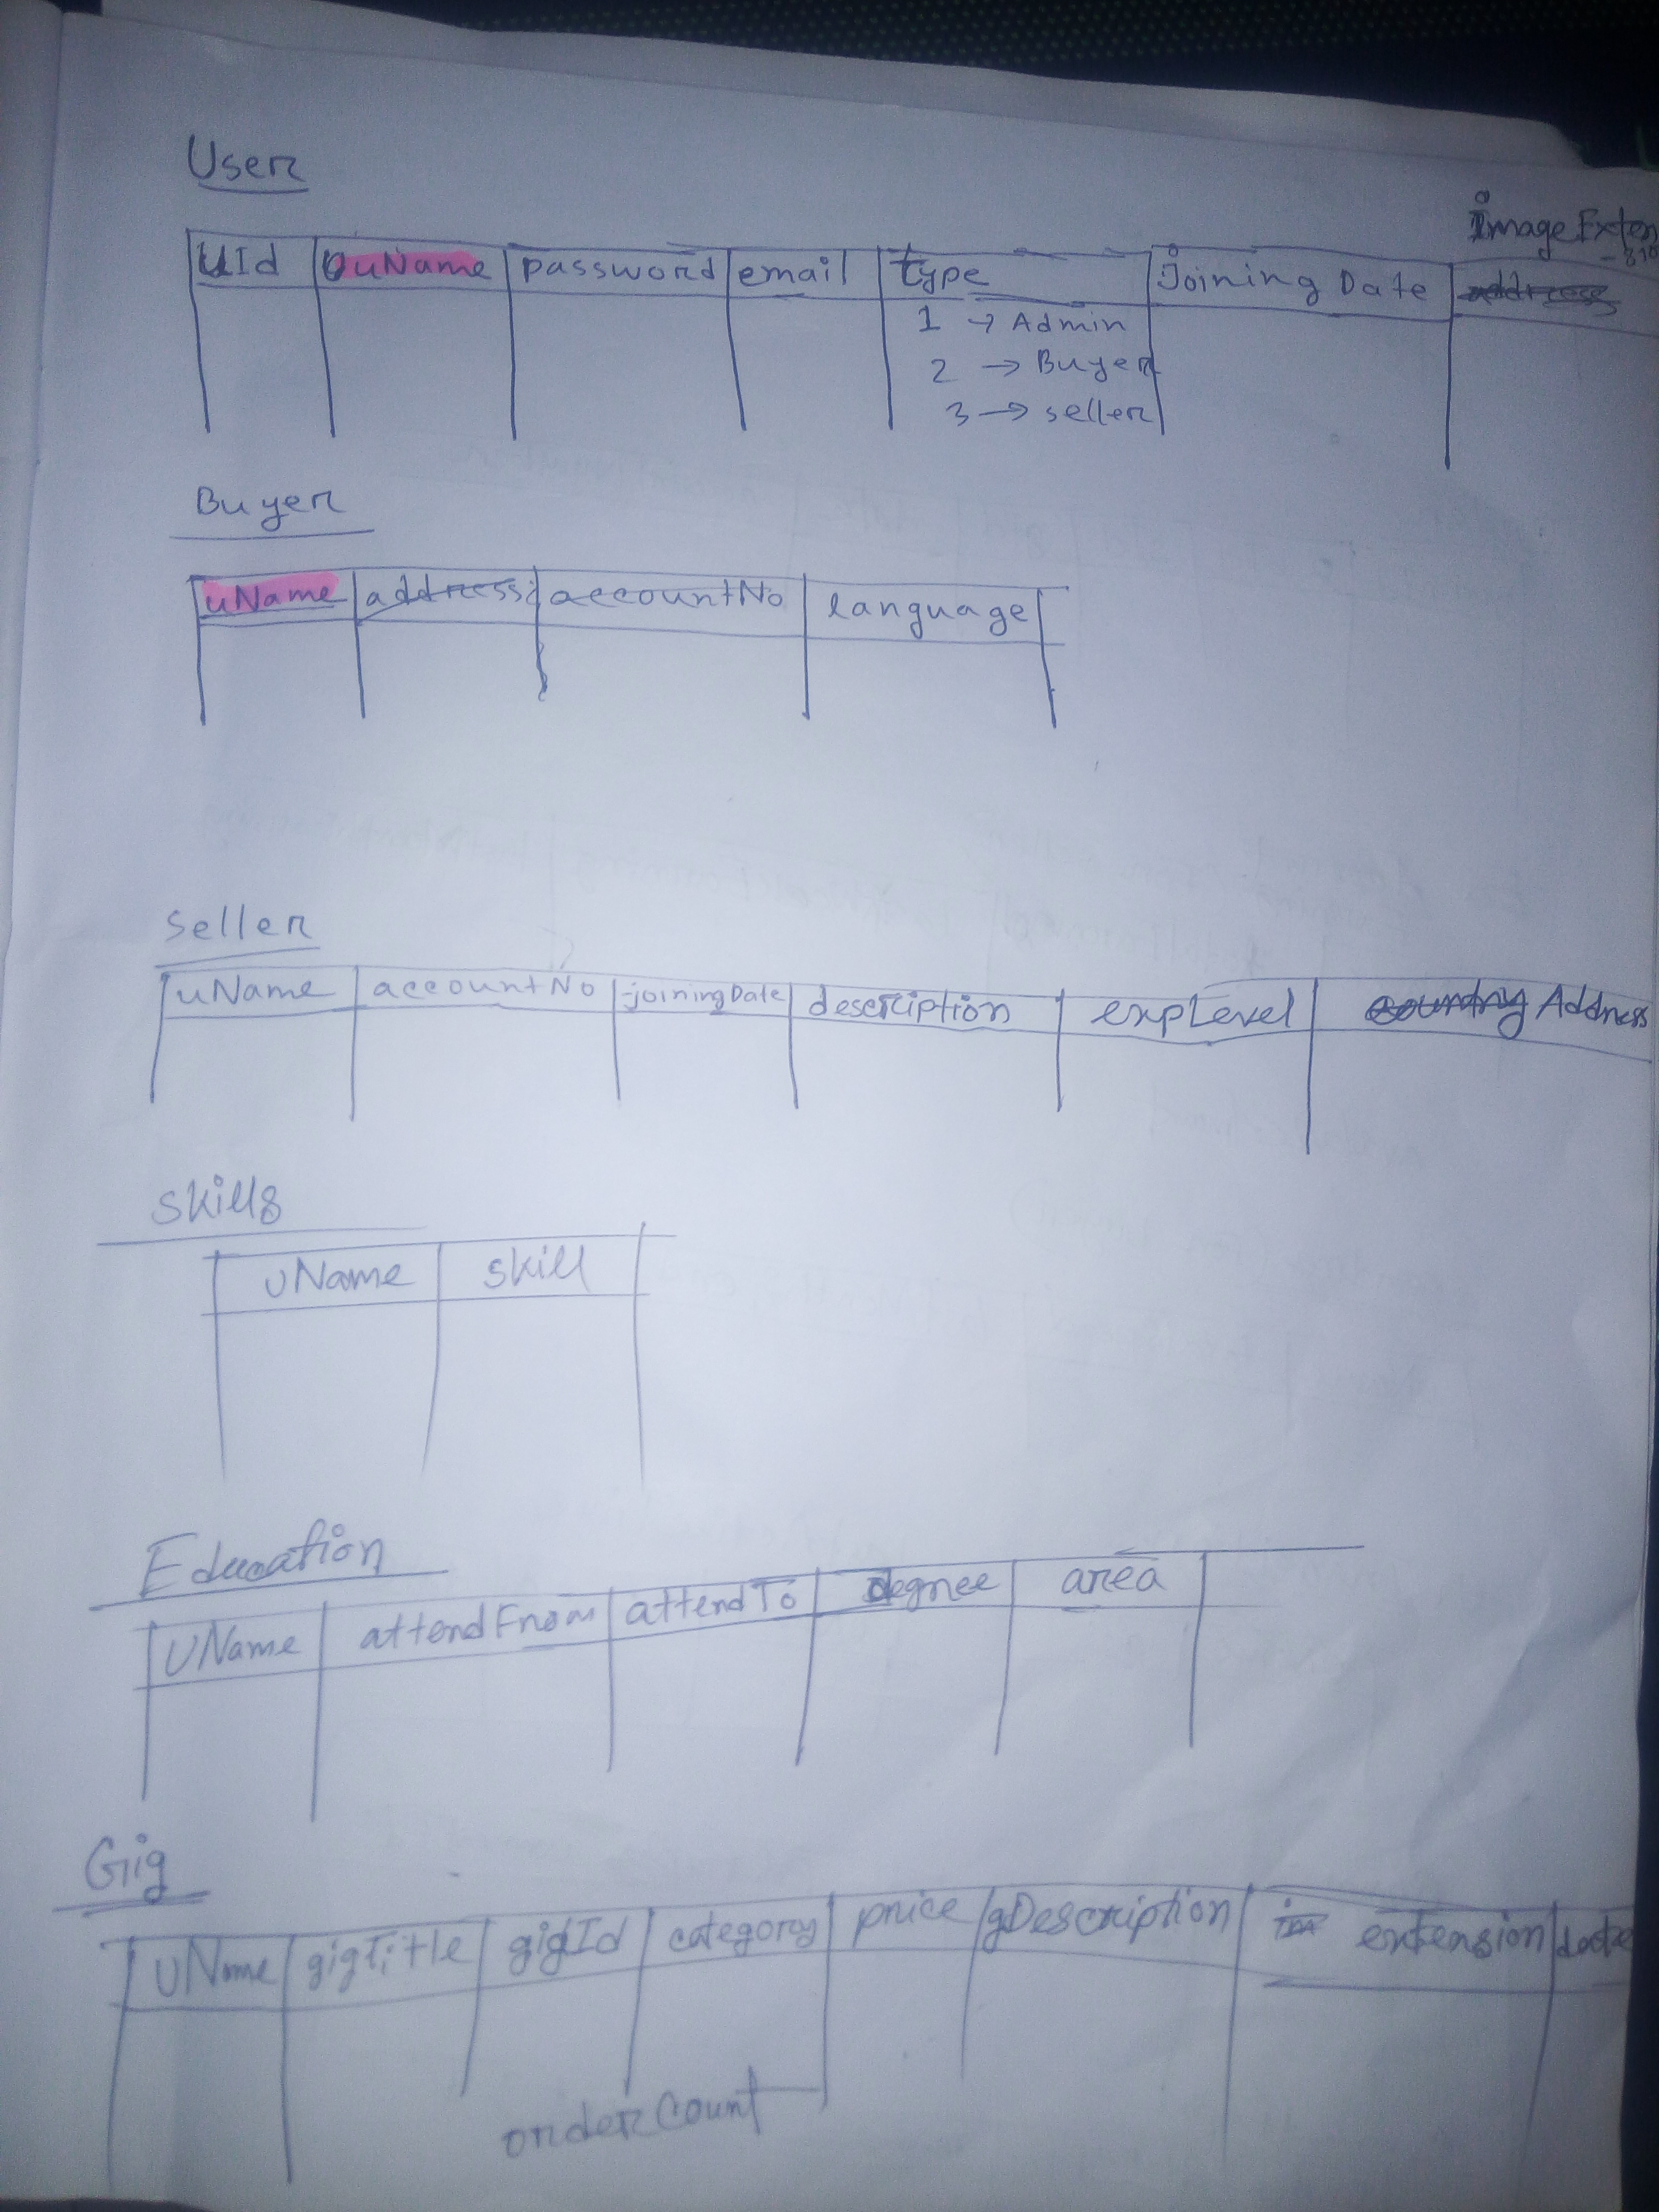 User
imageExten
UId uName password email type Joining Date address
1 → Admin
2 → Buyer
3 → seller
Buyer
uName address accountNo language
Seller
uName accountNo joiningDate description expLevel country Address
Skills
uName skill
Education
UName attendFrom attendTo degree area
Gig
UName gigTitle gigId category price gDescription extension
orderCount